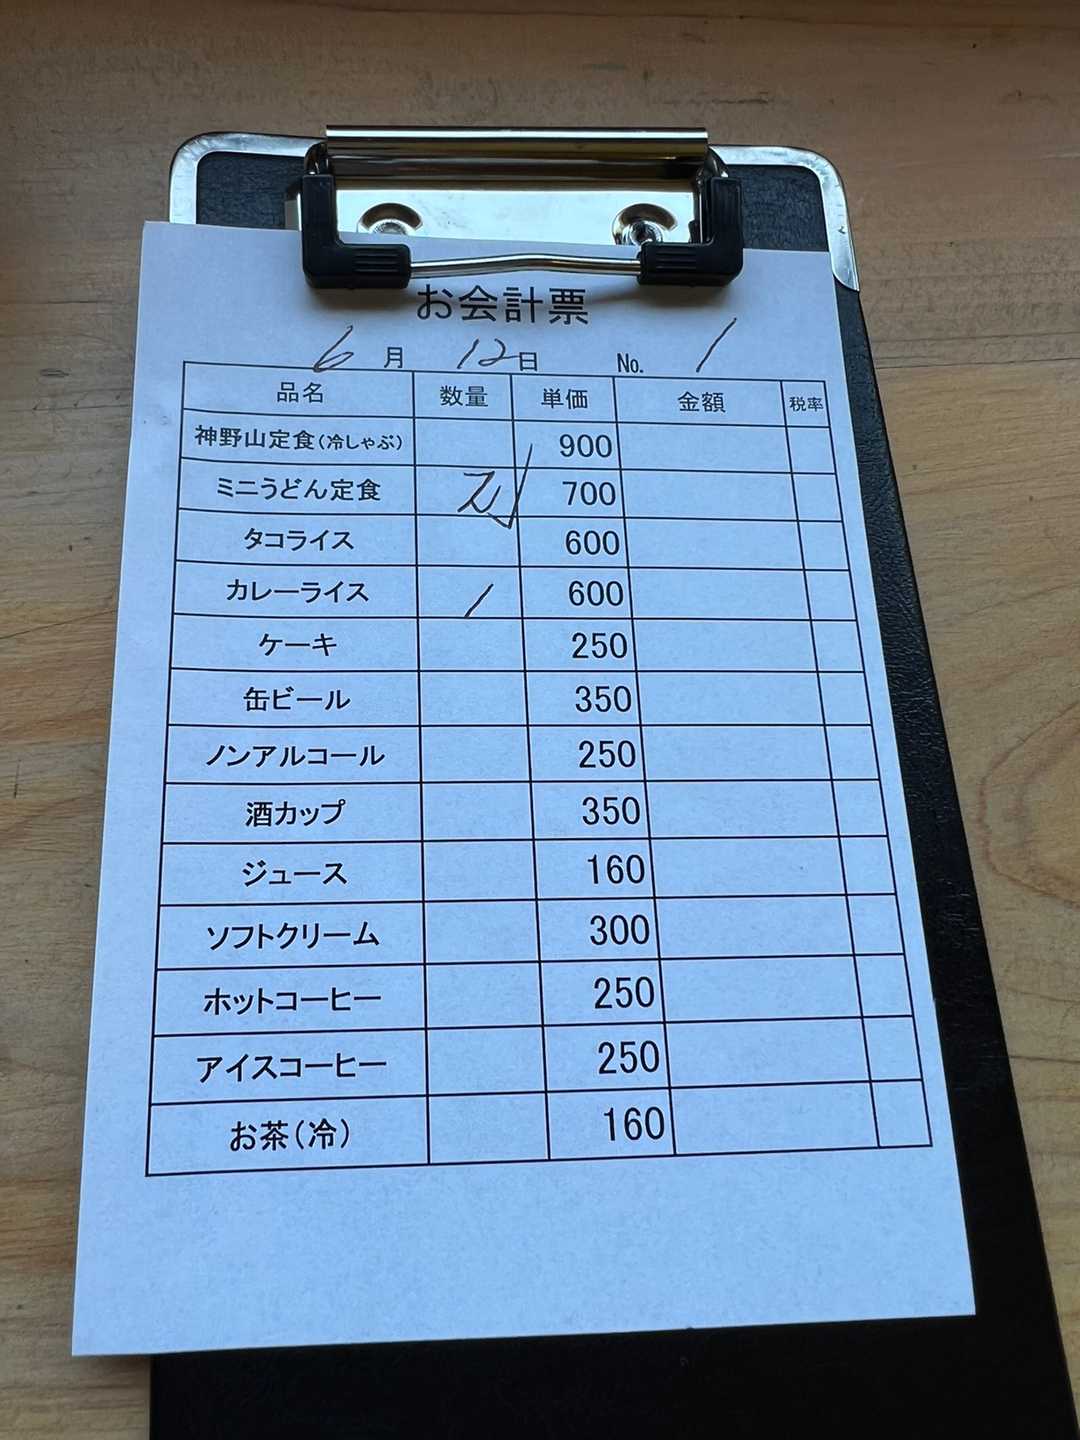 お会計票
6月 12日 No. 1
品名 数量 単価 金額 税率
神野山定食(冷しゃぶ) 900
ミニうどん定食 700
タコライス 600
カレーライス 1 600
ケーキ 250
缶ビール 350
ノンアルコール 250
酒カップ 350
ジュース 160
ソフトクリーム 300
ホットコーヒー 250
アイスコーヒー 250
お茶(冷) 160